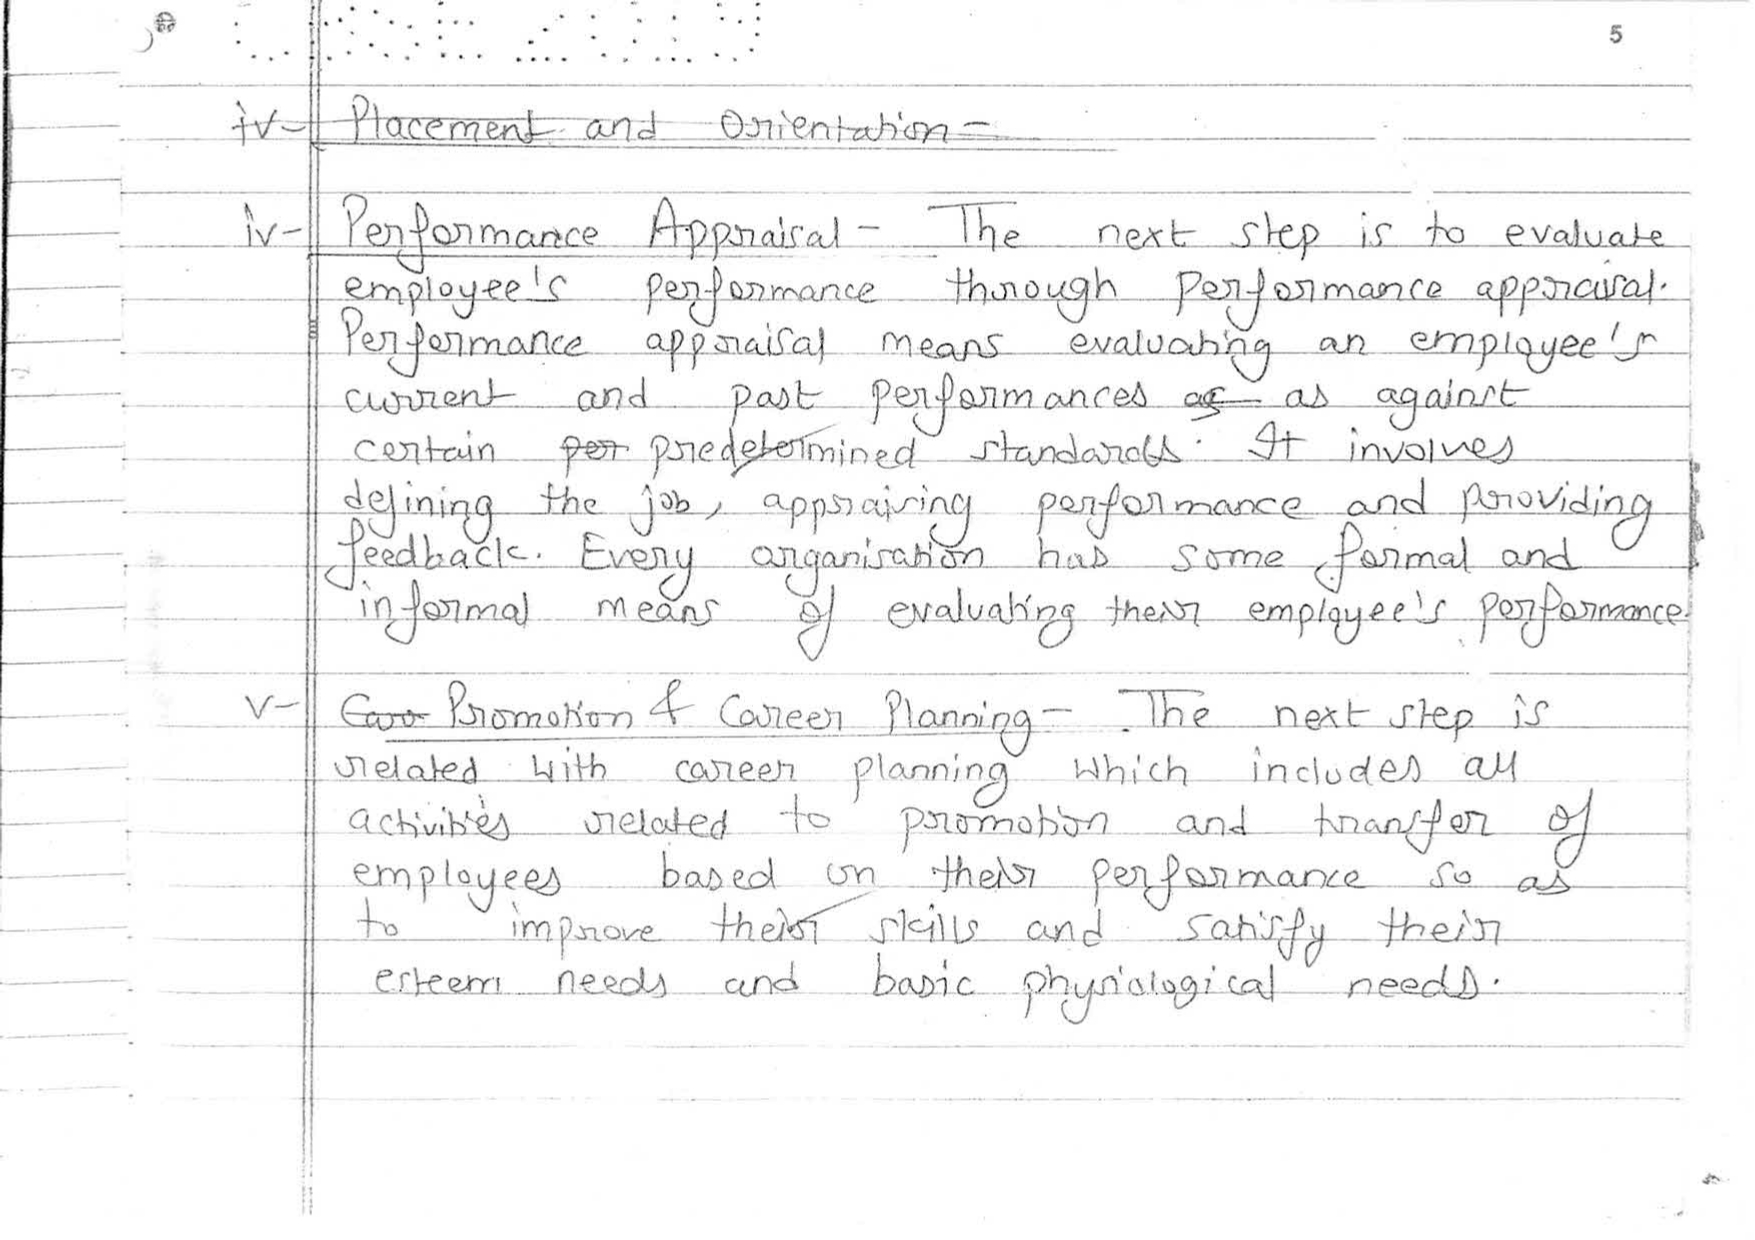 5
iv- Placement and Orientation-
iv- Performance Appraisal - The next step is to evaluate
employee's performance through performance appraisal.
Performance appraisal means evaluating an employee's
current and past performances as as against
certain per predetermined standards. It involves
defining the job, appraising performance and providing
feedback. Every organisation has some formal and
informal means of evaluating their employee's performance.
v- Promotion & Career Planning- The next step is
related with career planning which includes all
activities related to promotion and transfer of
employees based on their performance so as
to improve their skills and satisfy their
esteem needs and basic physiological needs.